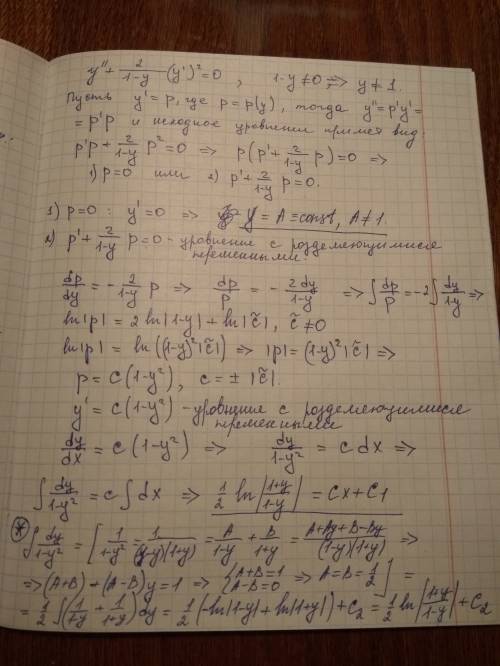 y'' + 2/(1-y) (y')² = 0 , 1-y≠0 => y≠1.
Пусть y' = p, где p = p(y), тогда y'' = p'y' =
= p'p и исходное уравнение примет вид:
p'p + 2/(1-y) p² = 0 => p(p' + 2/(1-y) p) = 0 =>
1) p=0 или 2) p' + 2/(1-y) p = 0.
1) p=0 : y'=0 => y = A = const, A≠1.
2) p' + 2/(1-y) p = 0 - уравнение с разделяющимися
переменными.
dp/dy = - 2/(1-y) p => dp/p = - 2dy/(1-y) => ∫ dp/p = -2∫ dy/(1-y) =>
ln|p| = 2 ln|1-y| + ln|c̃|, c̃ ≠ 0
ln|p| = ln((1-y)²|c̃|) => |p| = (1-y)²|c̃| =>
p = c(1-y²), c = ± |c̃|.
y' = c(1-y²) - уравнение с разделяющимися
переменными
dy/dx = c(1-y²) => dy/(1-y²) = c dx =>
∫ dy/(1-y²) = c ∫ dx => 1/2 ln|(1+y)/(1-y)| = Cx + C1
* ∫ dy/(1-y²) = [ 1/(1-y²) = 1/((1-y)(1+y)) = A/(1-y) + B/(1+y) = (A+Ay+B-By)/((1-y)(1+y)) =>
=> (A+B) + (A-B)y = 1 => { A+B=1 A-B=0 => A=B=1/2 ] =
= 1/2 ∫(1/(1-y) + 1/(1+y)) dy = 1/2 (-ln|1-y| + ln|1+y|) + C2 = 1/2 ln|(1+y)/(1-y)| + C2